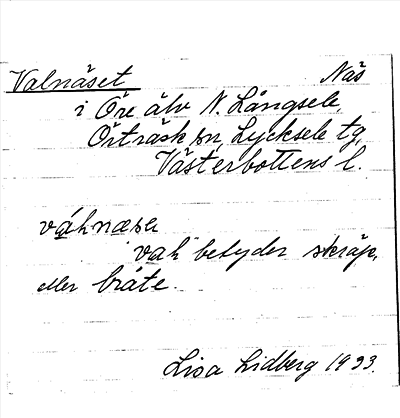 Valnäset Näs
i Öre älv N. Långsele,
Örträsk sn, Lycksele tg,
Västerbottens l.
váhnæsa
vah betyder skräp,
eller bråte.
Lisa Lidberg 1933.